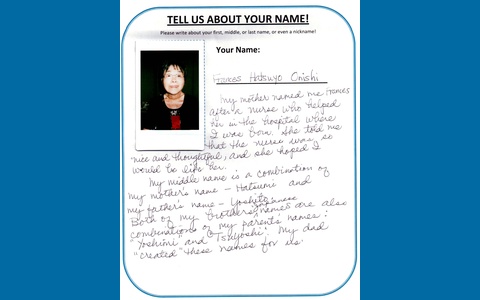 TELL US ABOUT YOUR NAME!
Please write about your first, middle, or last name, or even a nickname!
Your Name:
Frances Hatsuyo Onishi
My mother named me Frances
after a nurse who helped
her in the hospital where
I was born. She told me
that the nurse was so
nice and thoughtful, and she hoped I
would be like her.
My middle name is a combination of
my mother's name - Hatsumi and
my father's name - Yoshito.
Both of my brothers' Japanese names are also
combinations of my parents' names:
"Yoshimi" and "Tsuyoshi". My dad
"created" these names for us.